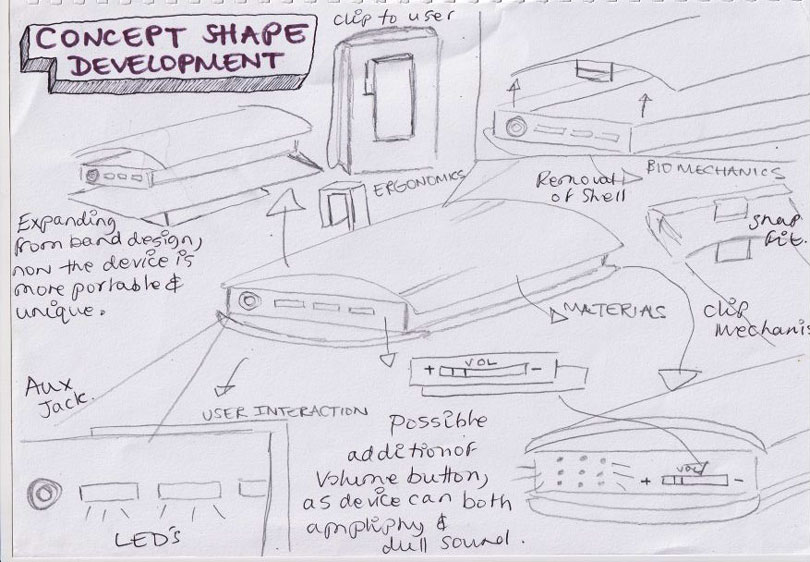 CONCEPT SHAPE
DEVELOPMENT
clip to user
ERGONOMICS
Removal
of shell
BIOMECHANICS
snap
fit.
Expanding
from band design,
now the device is
more portable &
unique.
MATERIALS
clip
Mechanis
Aux
Jack.
USER INTERACTION
+ VOL -
Possible
addition of
volume button,
as device can both
ampliphy &
dull sound.
+ VOL -
LED's